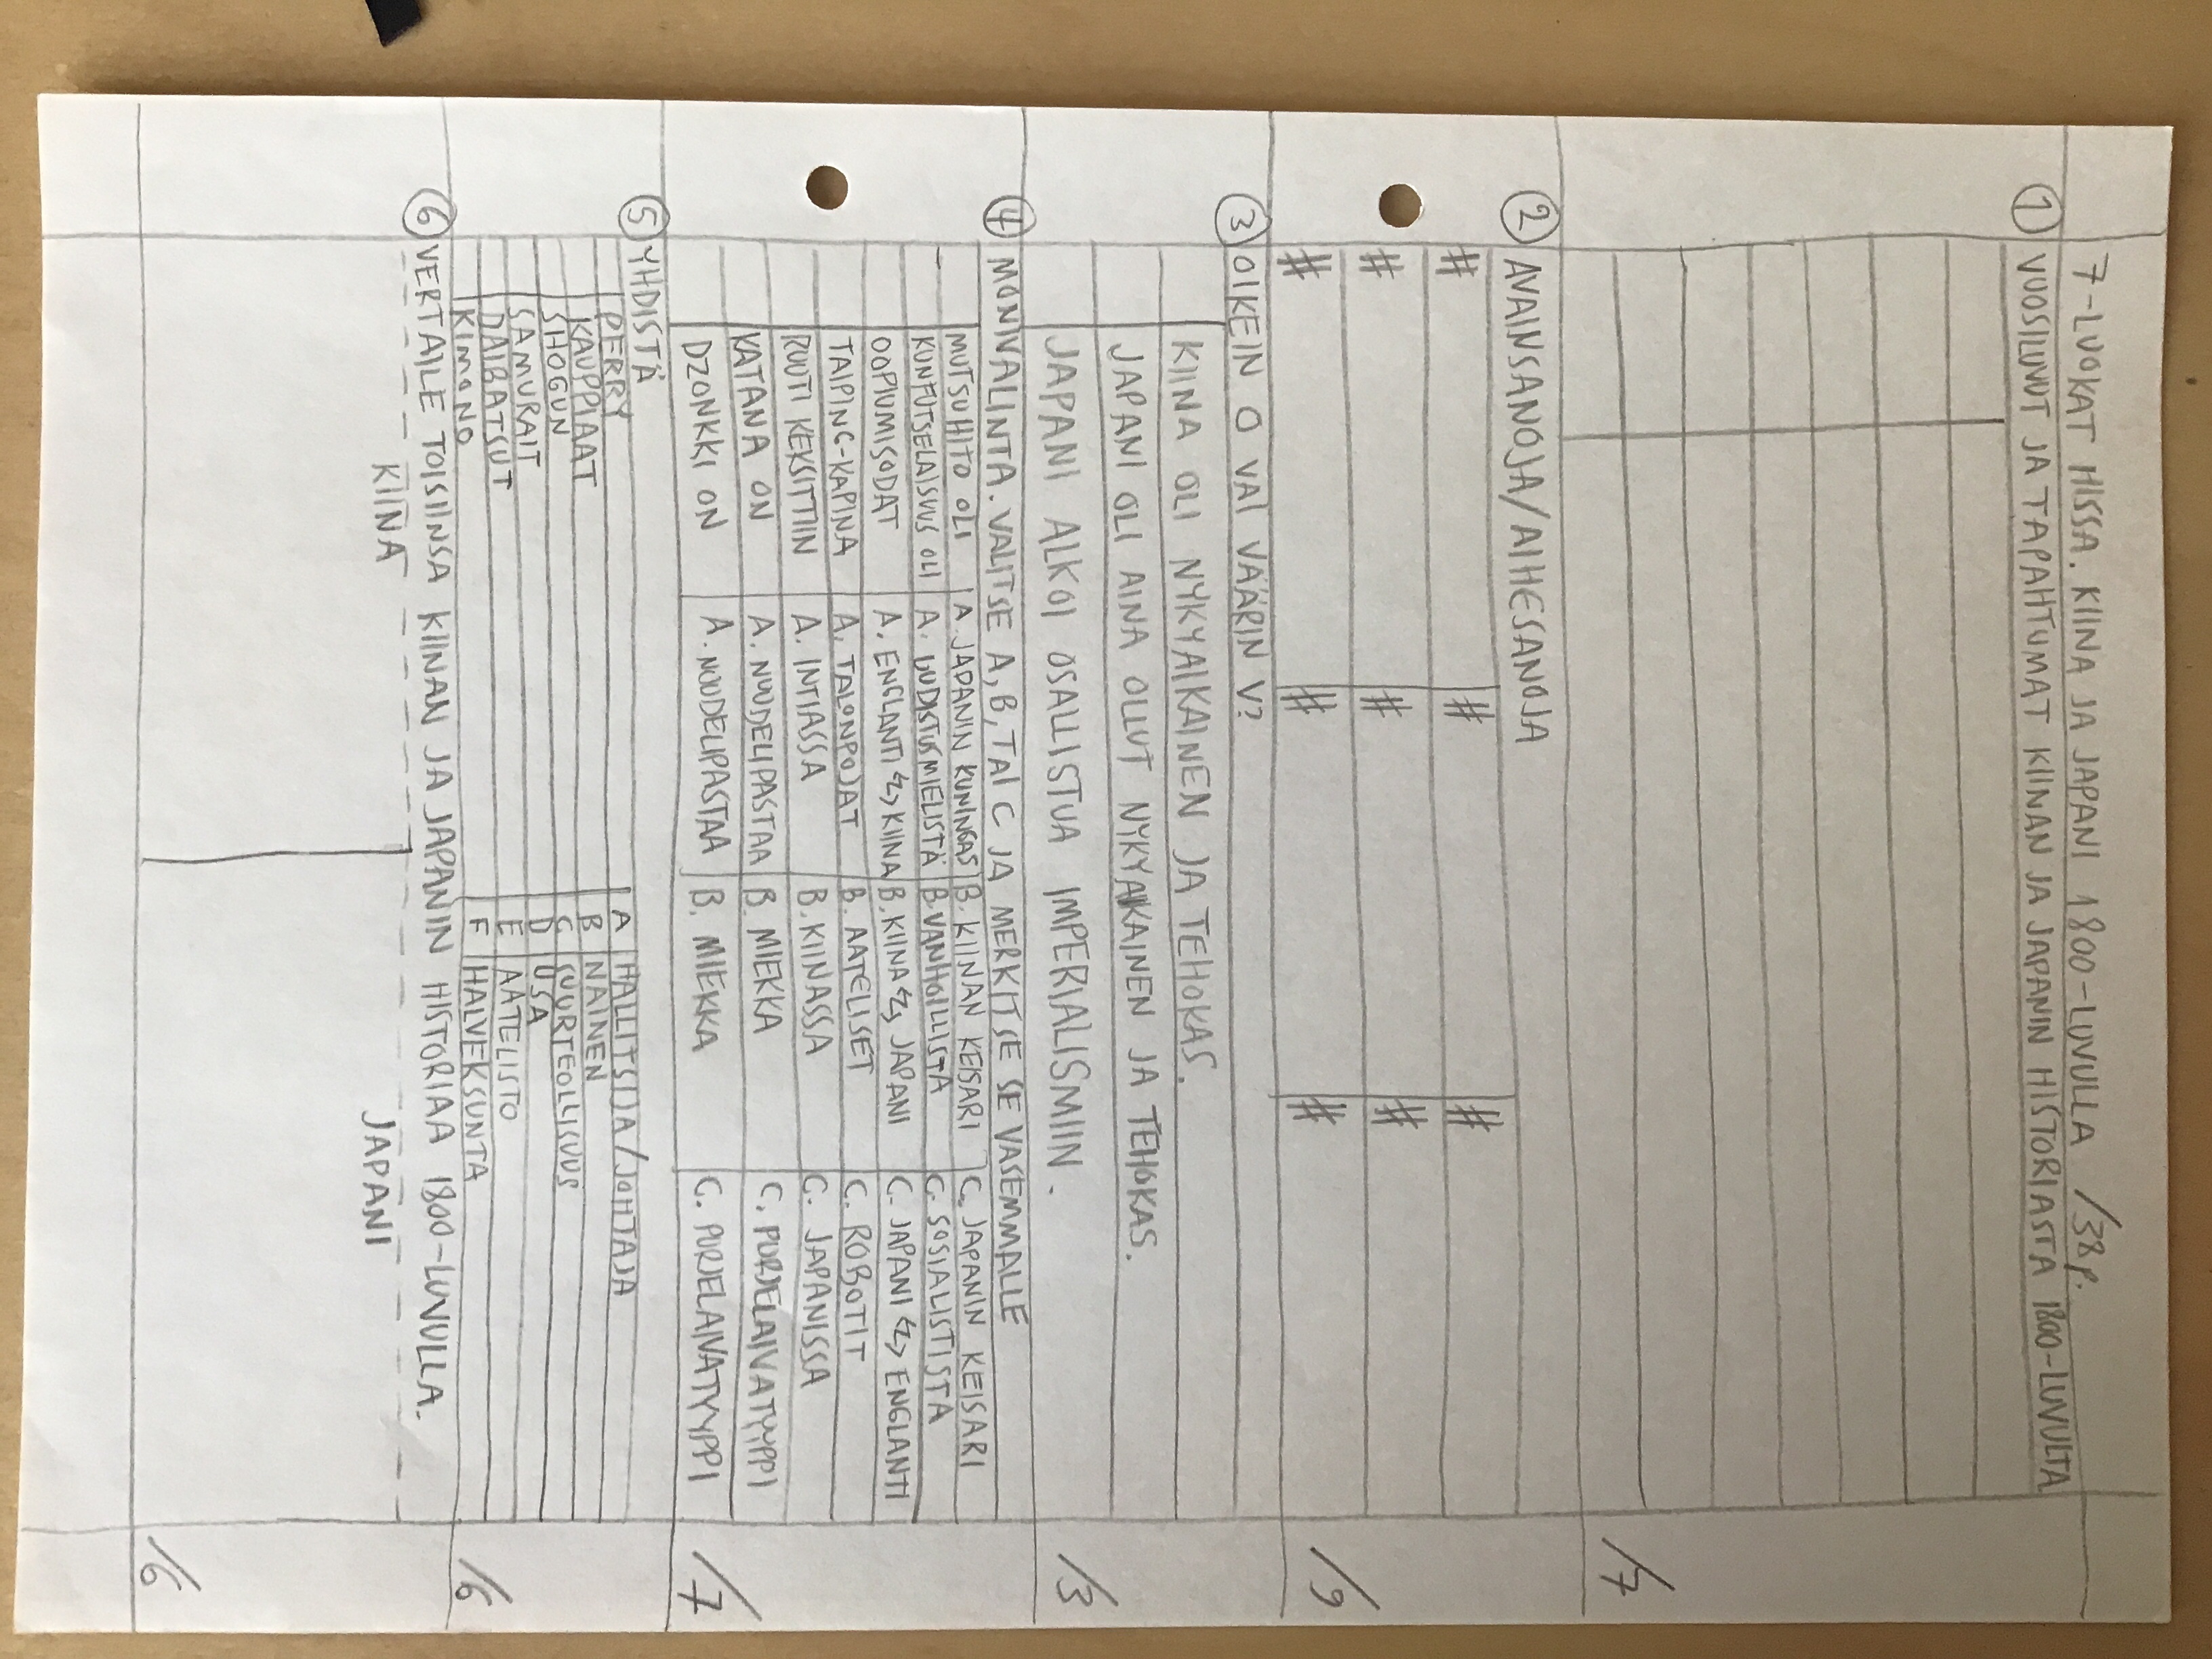 7-LUOKAT HISSA. KIINA JA JAPANI 1800-LUVULLA /38p.
① VUOSILUVUT JA TAPAHTUMAT KIINAN JA JAPANIN HISTORIASTA 1800-LUVULTA
/7
② AVAINSANOJA/AIHESANOJA
# # #
# # #
# # #
/9
③ OIKEIN O VAI VÄÄRIN V?
KIINA OLI NYKYAIKAINEN JA TEHOKAS.
JAPANI OLI AINA OLLUT NYKYAIKAINEN JA TEHOKAS.
JAPANI ALKOI OSALLISTUA IMPERIALISMIIN.
/3
④ MONIVALINTA. VALITSE A, B, TAI C JA MERKITSE SE VASEMMALLE
MUTSUHITO OLI A. JAPANIN KUNINGAS B. KIINAN KEISARI C. JAPANIN KEISARI
KUNFUTSELAISUUS OLI A. BUDISTISMIELISTÄ B. VANHOILLISTA C. SOSIALISTISTA
OOPIUMISODAT A. ENGLANTI KIINA B. KIINA JAPANI C. JAPANI ENGLANTI
TAIPING-KAPINA A. TALONPOJAT B. AATELISET C. ROBOTIT
RUUTI KEKSITTIIN A. INTIASSA B. KIINASSA C. JAPANISSA
KATANA ON A. NUUDELIPASTAA B. MIEKKA C. PURJELAIVATYYPPI
DZONKKI ON A. NUUDELIPASTAA B. MIEKKA C. PURJELAIVATYYPPI
/7
⑤ YHDISTÄ
PERRY A HALLITSIJA/JOHTAJA
KAUPPIAAT B NAINEN
SHOGUN C SUURTEOLLISUUS
SAMURAIT D USA
DAIBATSUT E AATELISTO
KIMONO F HALVEKSUNTA
/6
⑥ VERTAILE TOISIINSA KIINAN JA JAPANIN HISTORIAA 1800-LUVULLA.
KIINA JAPANI
/6